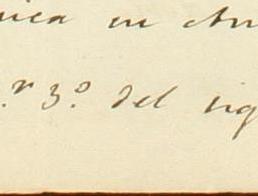 ica en Am
.r 3.o del sig